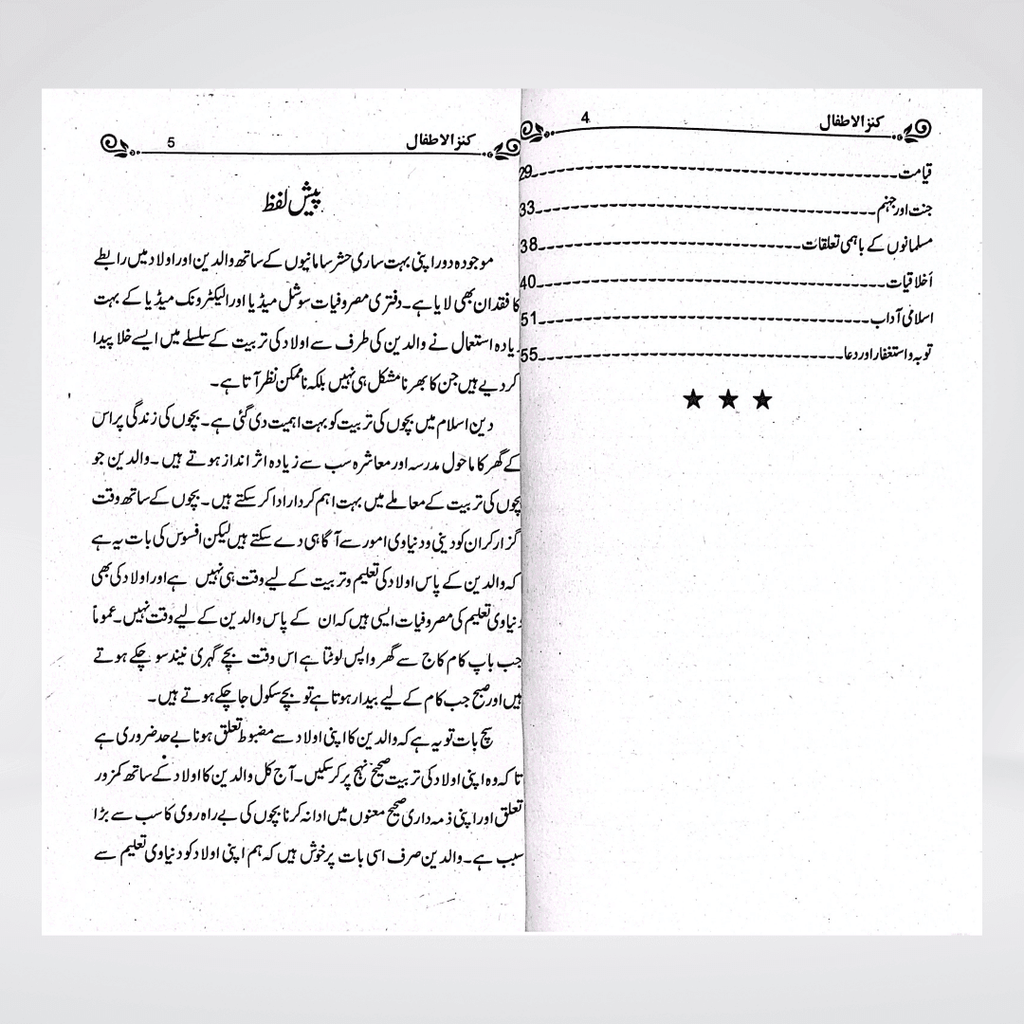 کنز الاطفال 4
قیامت 29
جنت اور جہنم 33
مسلمانوں کے باہمی تعلقات 38
اخلاقیات 40
اسلامی آداب 51
توبہ و استغفار اور دعا 55
★ ★ ★
کنز الاطفال 5
پیش لفظ
موجودہ دور اپنی بہت ساری حشر سامانیوں کے ساتھ والدین اور اولاد میں رابطے
کا فقدان بھی لایا ہے۔ دفتری مصروفیات سوشل میڈیا اور الیکٹرونک میڈیا کے بہت
زیادہ استعمال نے والدین کی طرف سے اولاد کی تربیت کے سلسلے میں ایسے خلا پیدا
کر دیے ہیں جن کا بھرنا مشکل ہی نہیں بلکہ ناممکن نظر آتا ہے۔
دین اسلام میں بچوں کی تربیت کو بہت اہمیت دی گئی ہے۔ بچوں کی زندگی پر اس
کے گھر کا ماحول مدرسہ اور معاشرہ سب سے زیادہ اثر انداز ہوتے ہیں۔ والدین جو
بچوں کی تربیت کے معاملے میں بہت اہم کردار ادا کر سکتے ہیں۔ بچوں کے ساتھ وقت
گزار کر ان کو دینی و دنیاوی امور سے آگاہی دے سکتے ہیں لیکن افسوس کی بات یہ ہے
کہ والدین کے پاس اولاد کی تعلیم و تربیت کے لیے وقت ہی نہیں ہے اور اولاد کی بھی
دنیاوی تعلیم کی مصروفیات ایسی ہیں کہ ان کے پاس والدین کے لیے وقت نہیں۔ عموماً
جب باپ کام کاج سے گھر واپس لوٹتا ہے اس وقت بچے گہری نیند سو چکے ہوتے
ہیں اور صبح جب کام کے لیے بیدار ہوتا ہے تو بچے سکول جا چکے ہوتے ہیں۔
سچ بات تو یہ ہے کہ والدین کا اپنی اولاد سے مضبوط تعلق ہونا بے حد ضروری ہے
تا کہ وہ اپنی اولاد کی تربیت صحیح نہج پر کر سکیں۔ آج کل والدین کا اولاد کے ساتھ کمزور
تعلق اور اپنی ذمہ داری صحیح معنوں میں ادا نہ کرنا بچوں کی بے راہ روی کا سب سے بڑا
سبب ہے۔ والدین صرف اسی بات پر خوش ہیں کہ ہم اپنی اولاد کو دنیاوی تعلیم سے